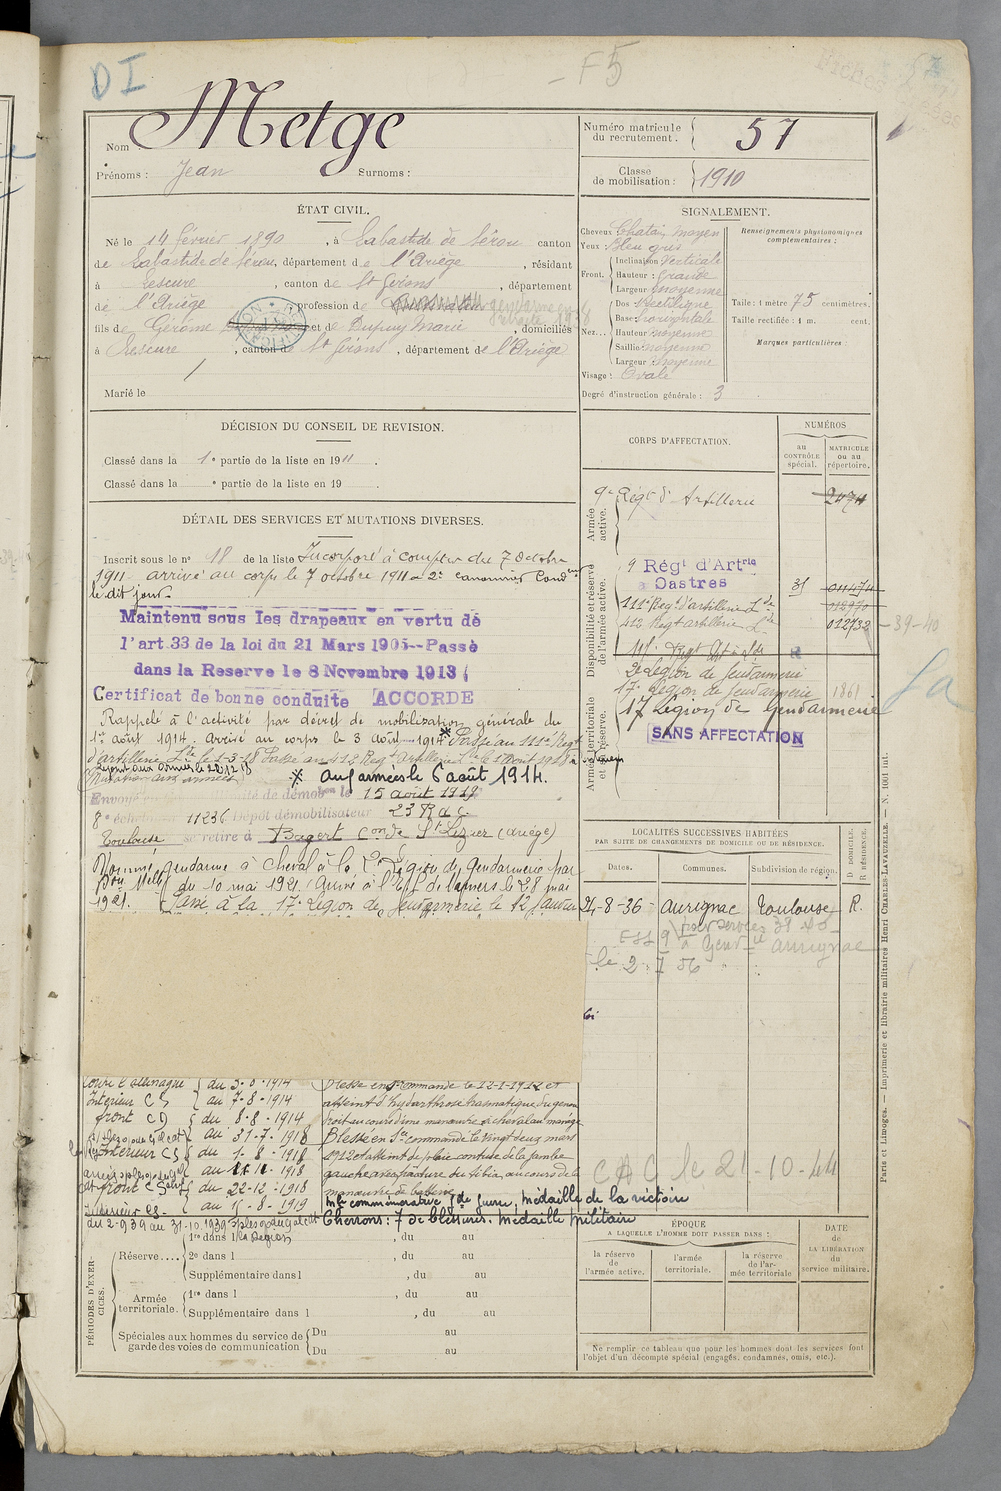 D I
- F5
Nom : Metge
Prénoms : Jean Surnoms :
Numéro matricule du recrutement : 57
Classe de mobilisation : 1910
ÉTAT CIVIL.
Né le 14 février 1890, à Labastide de Sérou canton
de Labastide de Sérou, département de l'Ariège, résidant
à Lescure, canton de St Girons, département
de l'Ariège profession de
fils de Gérôme et de Dupuy Marie, domiciliés
à Lescure, canton de St Girons, département de l'Ariège
Marié le
SIGNALEMENT.
Cheveux Chatain moyen
Yeux bleu gris
Front. Inclinaison Verticale
Hauteur : grande
Largeur moyenne
Nez... Dos rectiligne
Base horizontale
Hauteur moyenne
Saillie moyenne
Largeur moyenne
Visage : Ovale
Degré d'instruction générale : 3
Renseignements physionomiques complémentaires :
Taille : 1 mètre 75 centimètres.
Taille rectifiée : 1 m. cent.
Marques particulières :
DÉCISION DU CONSEIL DE REVISION.
Classé dans la 1e partie de la liste en 1911.
Classé dans la e partie de la liste en 19 .
DÉTAIL DES SERVICES ET MUTATIONS DIVERSES.
Inscrit sous le n° 18 de la liste Incorporé à compter du 7 octobre
1911 arrivé au corps le 7 octobre 1911 2e canonnier Cond
le dit jour.
Maintenu sous les drapeaux en vertu de
l'art.33 de la loi du 21 Mars 1905--Passé
dans la Reserve le 8 Novembre 1913
Certificat de bonne conduite ACCORDE
Rappelé à l'activité par décret de mobilisation générale du
1er août 1914. arrivé au corps le 3 août 1914 * Passé au 111e Regt
d'artillerie Lde le 1-3-18
* aux armées le 6 août 1914.
Envoyé le 15 août 1919
8e échelon 11236 Dépôt démobilisateur 23 R a c
Toulouse se retire à Bagert Con de St Lizier (ariège)
Nommé gendarme à cheval à la 2e Légion de Gendarmerie par
du 10 mai 1921. Arrivé à le 28 mai
1921. Passé à la 17e Légion de Gendarmerie le 12 janvier
CORPS D'AFFECTATION.
NUMÉROS
au CONTRÔLE spécial.
MATRICULE ou au répertoire.
Armée active.
9e Régt d'Artillerie 2074
Disponibilité et réserve de l'armée active.
9 Régt d'Artrie
à Castres 31 011474
111e Regt d'artillerie Lde 012970
412 Regt artillerie Lde 012732 - 39-40
2e Legion de Gendarmerie
17e Legion de Gendarmerie 1861
17 Legion de Gendarmerie
Armée territoriale et réserve.
SANS AFFECTATION
LOCALITÉS SUCCESSIVES HABITÉES
PAR SUITE DE CHANGEMENTS DE DOMICILE OU DE RÉSIDENCE.
Dates. Communes. Subdivision de région. D. DOMICILE. R. RÉSIDENCE.
24-8-36 - Aurignac Toulouse R.
à Gend aurignac
le 2 I 56
Contre l'allemagne
Intérieur CS du 3-8-1914
au 7-8-1914
front CD du 8-8-1914
au 31-7-1918
Intérieur CS du 1-8-1918
au 11-1918
front du 22-12-1918
Interieur CS au 15-8-1919
du 2-9-39 au 31-10-1939
Blessé en commandé le 12-1-1912 et
atteint d'hydarthrose traumatique du genou
droit au cours d'une manœuvre à cheval au manège
Blessé en Sce commandé le vingt deux mars
1912 et atteint de plaie contuse de la jambe
gauche avec fracture du tibia, au cours de la
manœuvre de
Mlle commémorative Gde Guerre, médaille de la victoire
Chevrons : 7 de blessures. Médaille Militaire
CAC le 21-10-44
PÉRIODES D'EXERCICES.
Réserve.... 1re dans la Légion, du au
2e dans l , du au
Supplémentaire dans l , du au
Armée territoriale. 1re dans l , du au
Supplémentaire dans l , du au
Spéciales aux hommes du service de garde des voies de communication Du au
Du au
ÉPOQUE
A LAQUELLE L'HOMME DOIT PASSER DANS :
la réserve de l'armée active.
l'armée territoriale.
la réserve de l'armée territoriale
DATE DE LA LIBÉRATION du service militaire.
Ne remplir ce tableau que pour les hommes dont les services font
l'objet d'un décompte spécial (engagés, condamnés, omis, etc.).
Paris et Limoges. — Imprimerie et librairie militaires Henri CHARLES-LAVAUZELLE. — N. 1001 int.